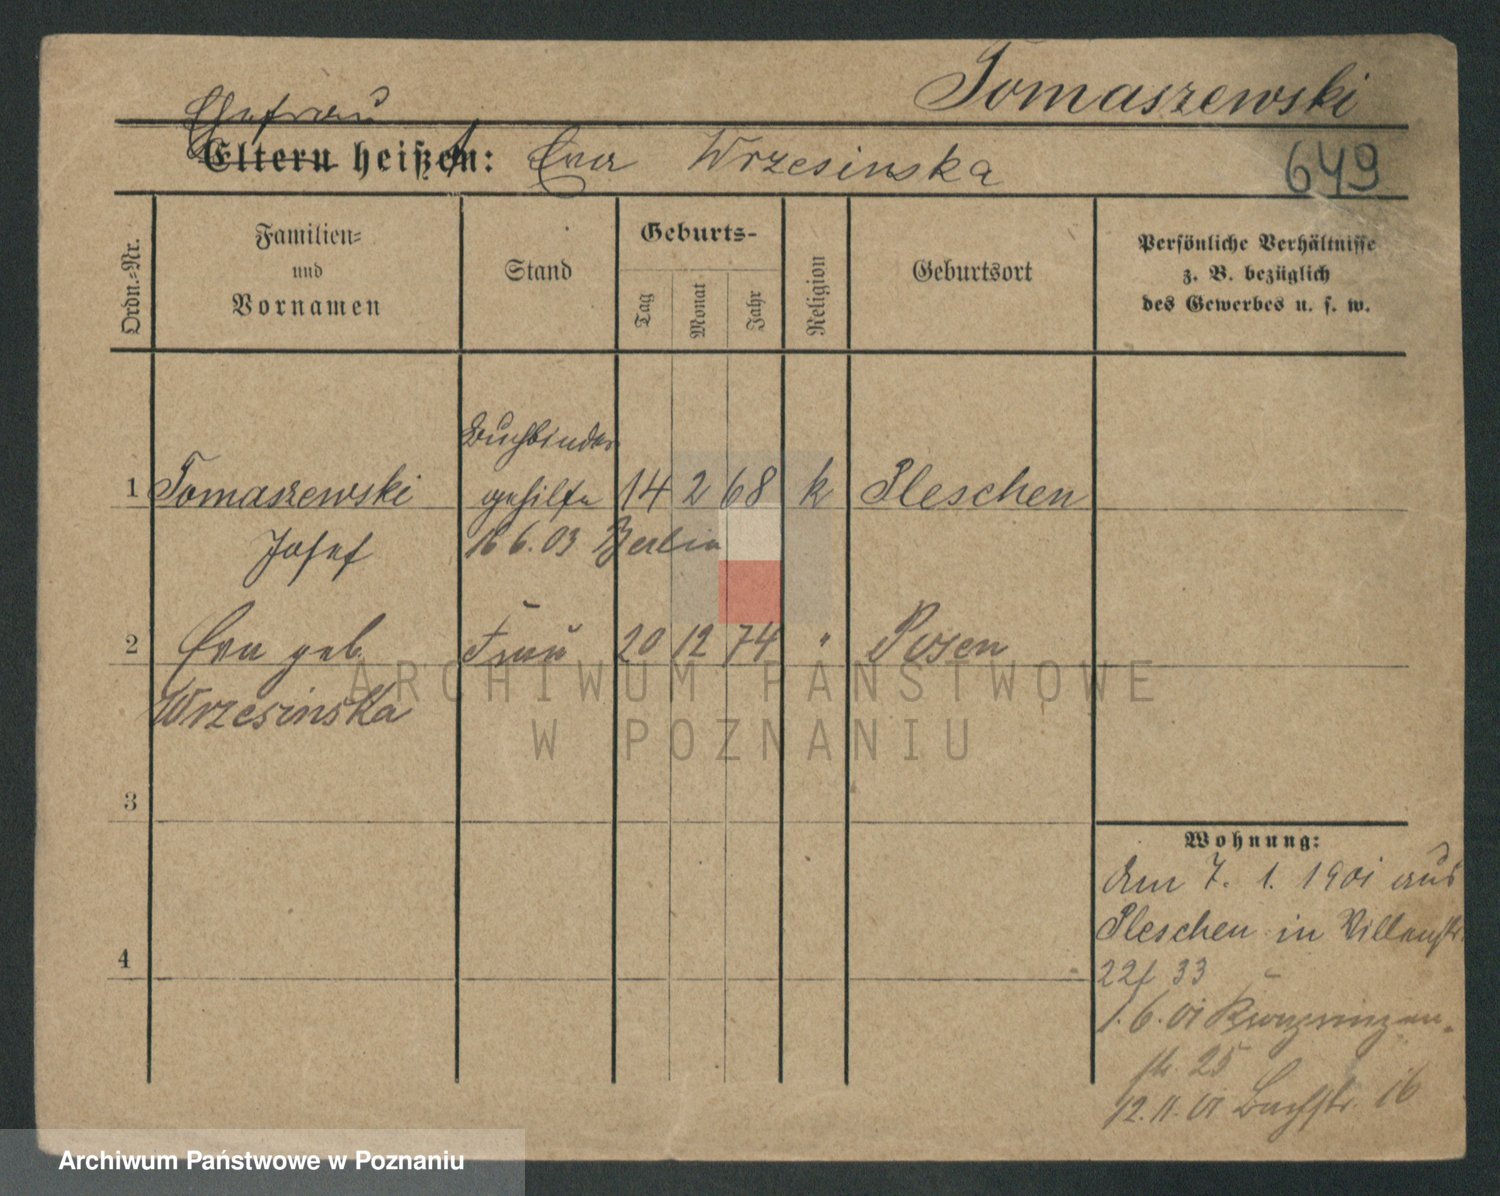 Tomaszewski
Ehefrau
Eltern heißt: Eva Wrzesinska
649
Ordn.-Nr.
Familien-
und
Vornamen
Stand
Geburts-
Tag
Monat
Jahr
Religion
Geburtsort
Persönliche Verhältnisse
z. B. bezüglich
des Gewerbes u. s. w.
Buchbinder
1 Tomaszewski gehilfe 14 2 68 k Pleschen
Josef 16 6. 03 Berlin
2 Eva geb. Frau 20 12 74 " Posen
Wrzesinska
3
4
Wohnung:
Am 7. 1. 1901 aus
Pleschen in Villenstr.
33
1. 6. 01
str. 25
12. 11. 01 Bachstr. 16
ARCHIWUM PAŃSTWOWE
W POZNANIU
Archiwum Państwowe w Poznaniu